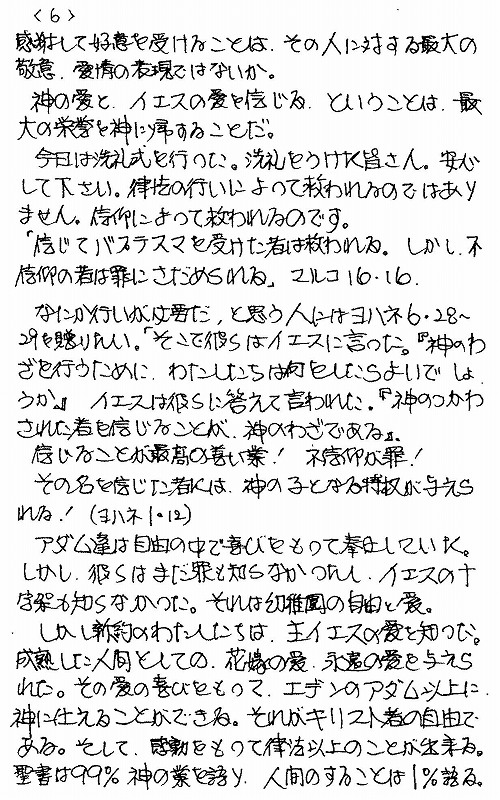 <6>
感謝して好意を受けることは、その人に対する最大の
敬意、愛情の表現ではないか。
神の愛と、イエスの愛を信じる、ということは、最
大の栄誉を神に帰することだ。
今日は洗礼式を行った。洗礼をうけた皆さん。安心
して下さい。律法の行いによって救われるのではあり
ません。信仰によって救われるのです。
「信じてバプテスマを受けた者は救われる。しかし、不
信仰の者は罪にさだめられる」マルコ16・16.
なにか行いが必要だ、と思う人にはヨハネ6・28〜
29を贈りたい。「そこで彼らはイエスに言った。『神のわ
ざを行うために、わたしたちは何をしたらよいでしょ
うか』 イエスは彼らに答えて言われた。『神のつかわ
された者を信じることが、神のわざである』.
信じることが最高の善い業! 不信仰が罪!
その名を信じた者には、神の子となる特权が与えら
れる!(ヨハネ1・12)
アダム達は自由の中で喜びをもって奉仕していた。
しかし、彼らはまだ罪も知らなかったし、イエスの十
字架も知らなかった。それは幼稚園の自由と愛。
しかし新約のわたしたちは、主イエスの愛を知った。
成熟した人間としての、花嫁の愛、永遠の愛を与えら
れた。その愛の喜びをもって、エデンのアダム以上に、
神に仕えることができる。それがキリスト者の自由で
ある。そして、感動をもって律法以上のことが出来る。
聖書は99%神の業を語り、人間のすることは1%語る。